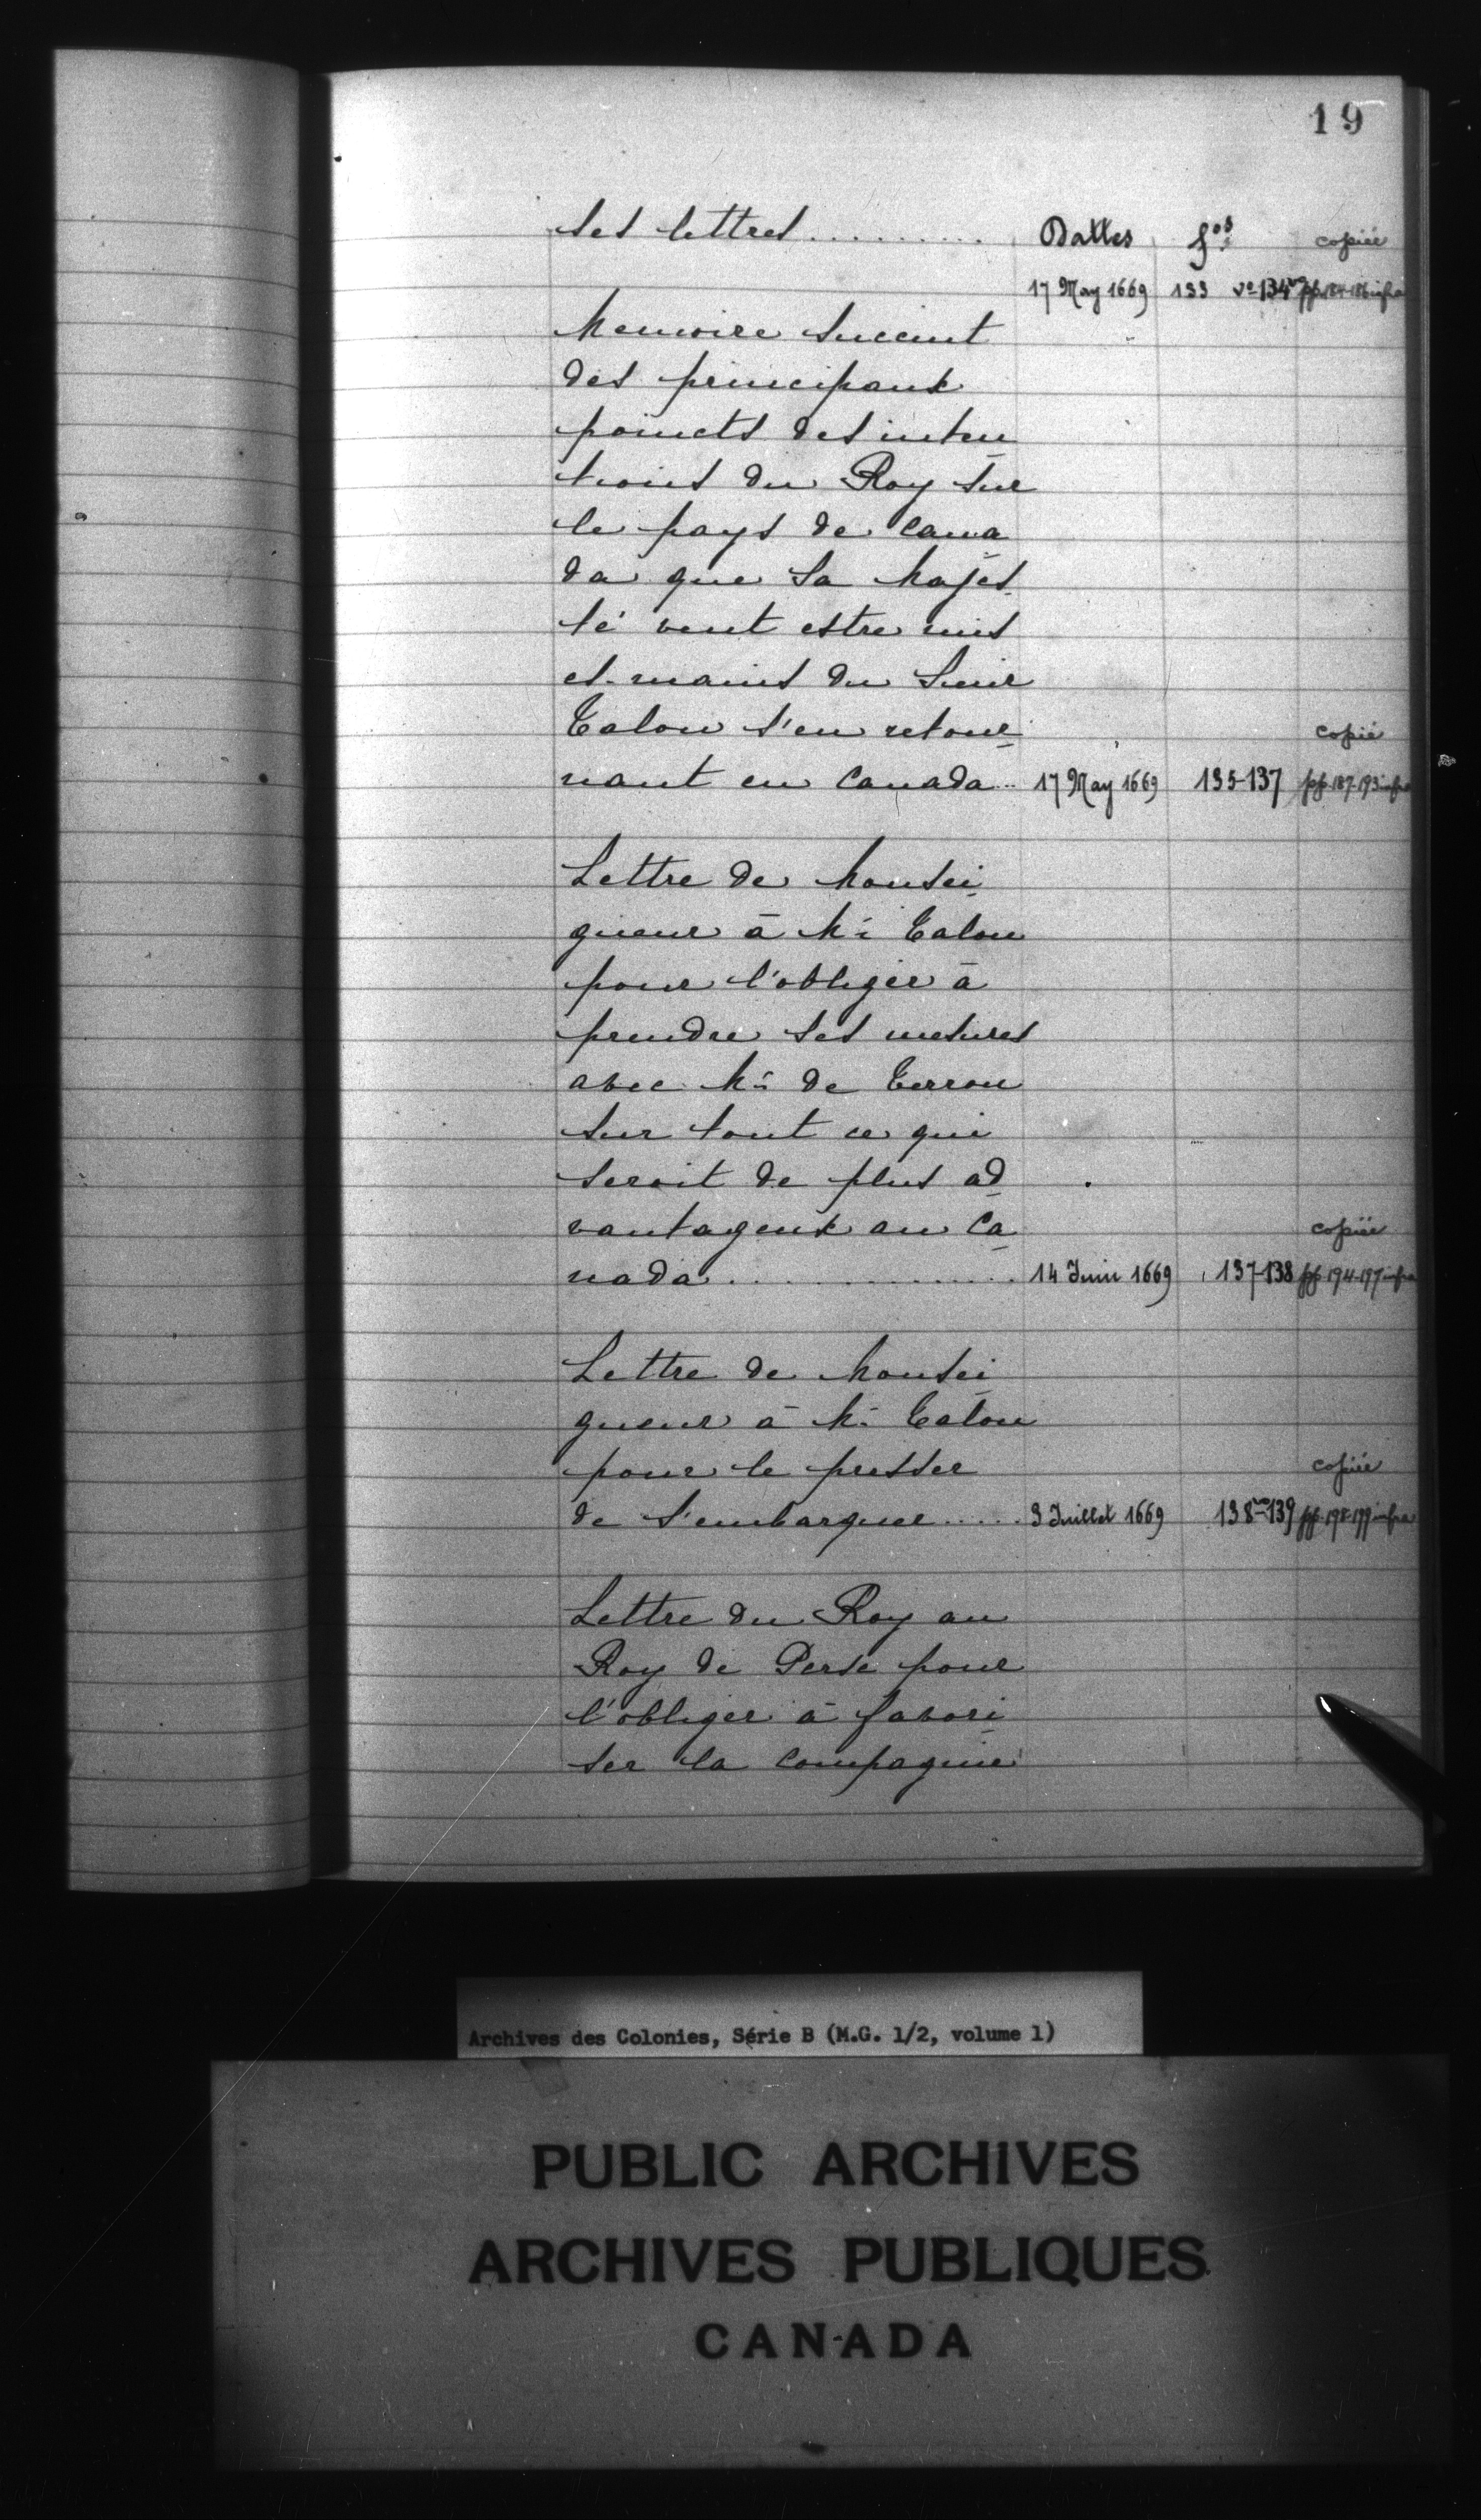 19
ses lettres.......... Dattes fos copiée
17 May 1669 133 vo-134 vo pp. 184-186 infra
Memoire succint
des principaux
poincts des inten
tions du Roy sur
le pays de Cana
da que Sa Majes
té veut estre mis
es-mains du Sieur
Talon s'en retour
copié
nant en Canada... 17 May 1669 135-137 pp. 187-193 infra
Lettre de Monsei
gneur à Mr Talon
pour l'obliger à
prendre ses mesures
avec Mr de Terron
sur tout ce qui
seroit de plus ad
vantageux au Ca
copiée
nada............... 14 Juin 1669 137-138 pp. 194-197 infra
Lettre de Monsei
gneur à Mr Talon
pour le presser
copiée
de s'embarquer..... 3 Juillet 1669 138 vo-139 pp. 198-199 infra
Lettre du Roy au
Roy de Perse pour
l'obliger à favori
ser la Compagnie
Archives des Colonies, Série B (M.G. 1/2, volume 1)
PUBLIC ARCHIVES
ARCHIVES PUBLIQUES
CANADA